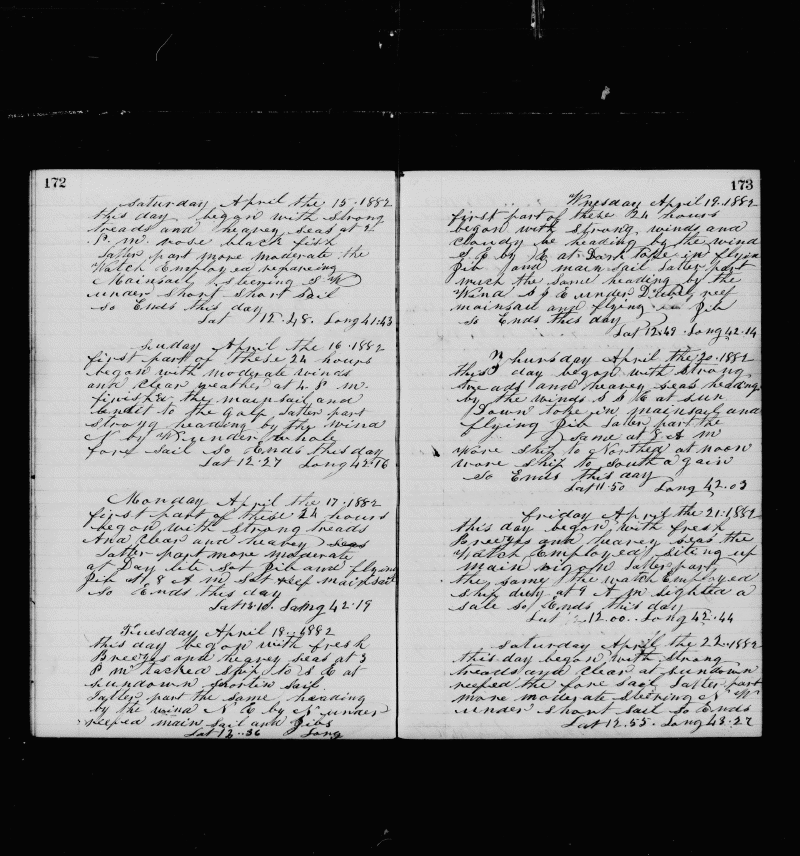 172
Saturday April the 15. 1882
this day began with strong
treads and heavey seas at 4
P. m. rose black fish
latter part more moderate the
Watch Employed repareing
Mainsail Steering S W
under short short sail
so Ends this day
Lat 12.48. Long 41.43
Suday April the 16. 1882
first part of these 24 hours
began with moderate winds
and Clear weather at 4 P m.
finished the mainsail and
bendit to the gaff latter part
strong heading by the wind
N by W under whole
fore sail so Ends this day
Lat 12.27 Long 42.16
Monday April the 17. 1882
first part of these 24 hours
began with strong treads
And Clear and heavey seas
latter part more moderate
at Day lite set Jib and flying
Jib at 8 A m set reef mainsail
so Ends this day
Lat 13.10. Long 42.19
Tuesday April 18. 1882
this day began with fresh
Breezes and heavey seas at 3
P m tacked Ship to S E at
sundown shortin sail
latter part the same heading
by the wind N E by N under
reefed main sail and Jibs
Lat 12..36 Long
173
Wnesday April 19. 1882
first part of these 24 hours
began with strong winds and
Cloudy be heading by the wind
S E by E at Dark Toke in flying
Jib and main sail latter part
much the same heading by the
Wind S S E under reef
mainsail and flying Jib
so Ends this day
Lat 12.49. Long 42.14
Thursday April the 20. 1882
this day began with strong
treads and heavey seas heading
by the winds S S E at sun
Down toke in mainsail and
flying Jib latter part the
same at 8 A m
Wore ship to Northed at noon
wore ship to South again
so Ends this day
Lat 11.50 Long 42.03
Friday April the 21. 1882
this day began with fresh
Breezes and heavey seas the
Watch Employed siting up
main rigon latter part
the same the watch Employed
ship duty at 9 A m sighted a
sale so Ends this day
Lat 12.00. Long 42.44
Saturday April the 22. 1882
this day began with strong
treads and Clear at sundown
reefed the fore sail latter part
more moderate steering N W
under short sail so Ends
Lat 12.55. Long 43.27